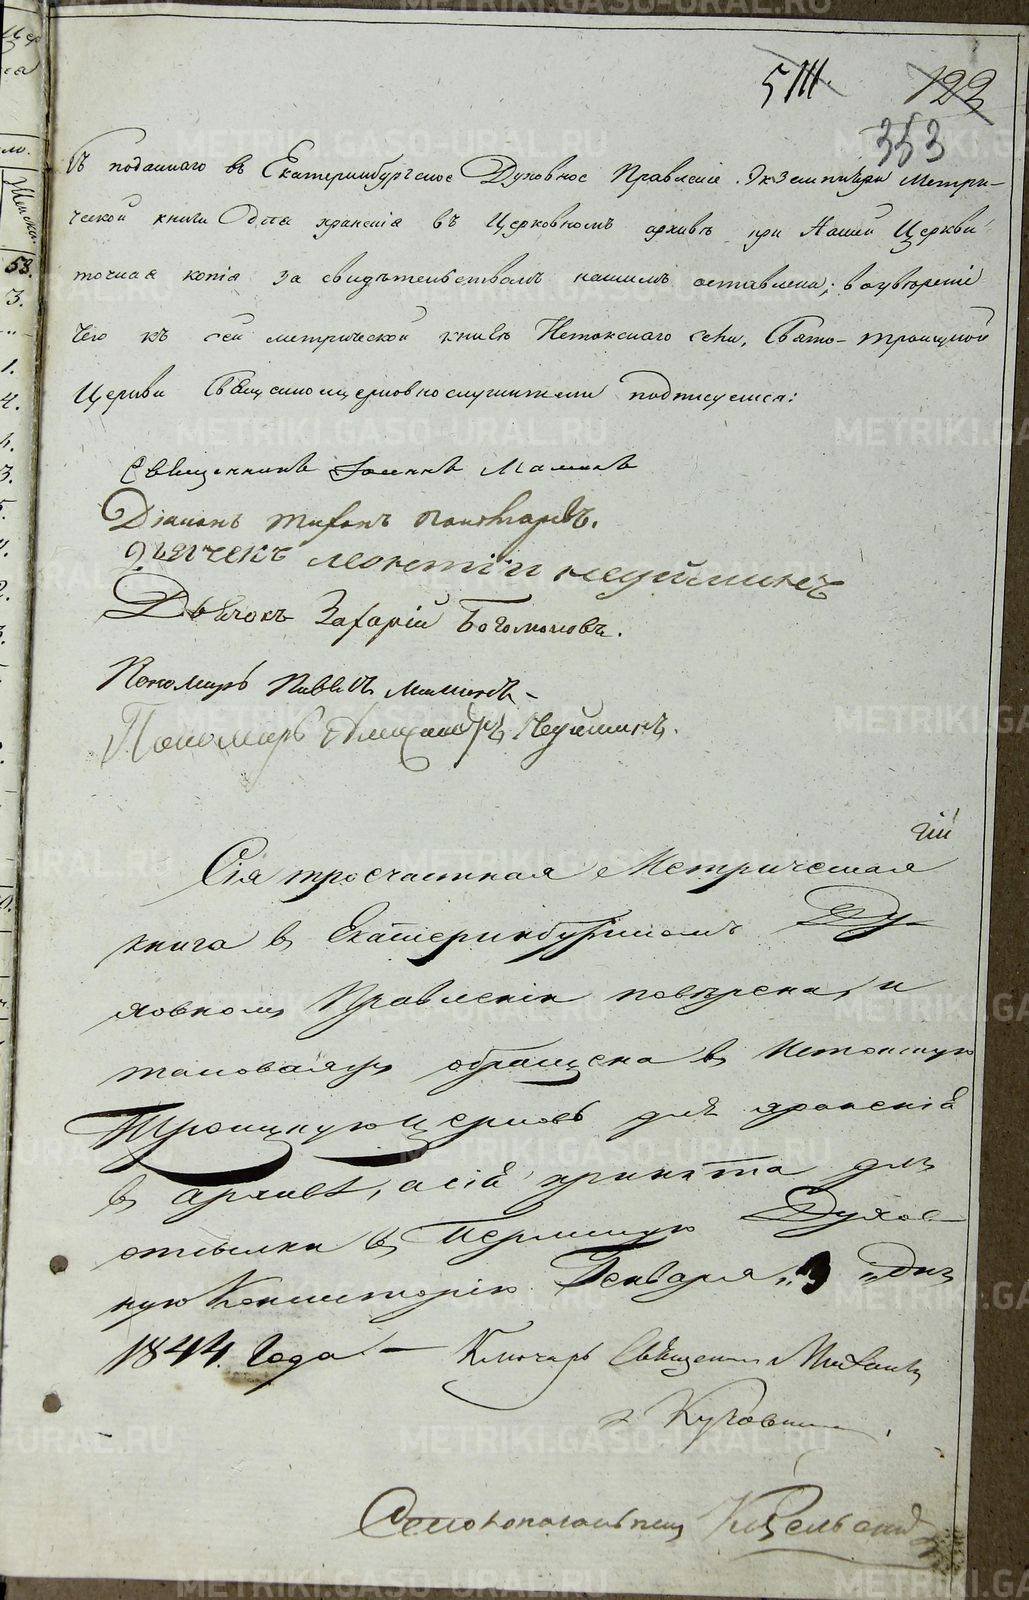 511.
122
353
Съ поданнаго въ Екатеринбургское Духовное Правленіе Экземпляра Метри-
ческой книги Для храненія въ Церковномъ архивѣ при Нашей Церкви
точная копія за свидѣтельствомъ нашимъ оставлена; во увѣреніе
чего къ сей метрической книгѣ Истокскаго села, Свято-троицкой
Церкви Священноцерковнослужители подписуемся:
Священникъ Іоаннъ Маминъ
Діаконъ
Дьячекъ леонтій неуйминъ
Дьячокъ Захарій Богомоловъ.
Пономарь Павелъ Маминъ
Пономарь Александръ Неуйминъ.
Сія троечастная Метрическая
книга въ Екатеринбургскомъ Ду-
ховномъ Правленіи повѣрена, и
таковаяжъ обращена въ Истокскую
Троицкую церковь для храненія
въ архивѣ, а сія принята для
отсылки въ Пермскую Духов-
ную Консисторію Генваря „3„ дня
1844. Года — Ключарь Священникъ Михаилъ